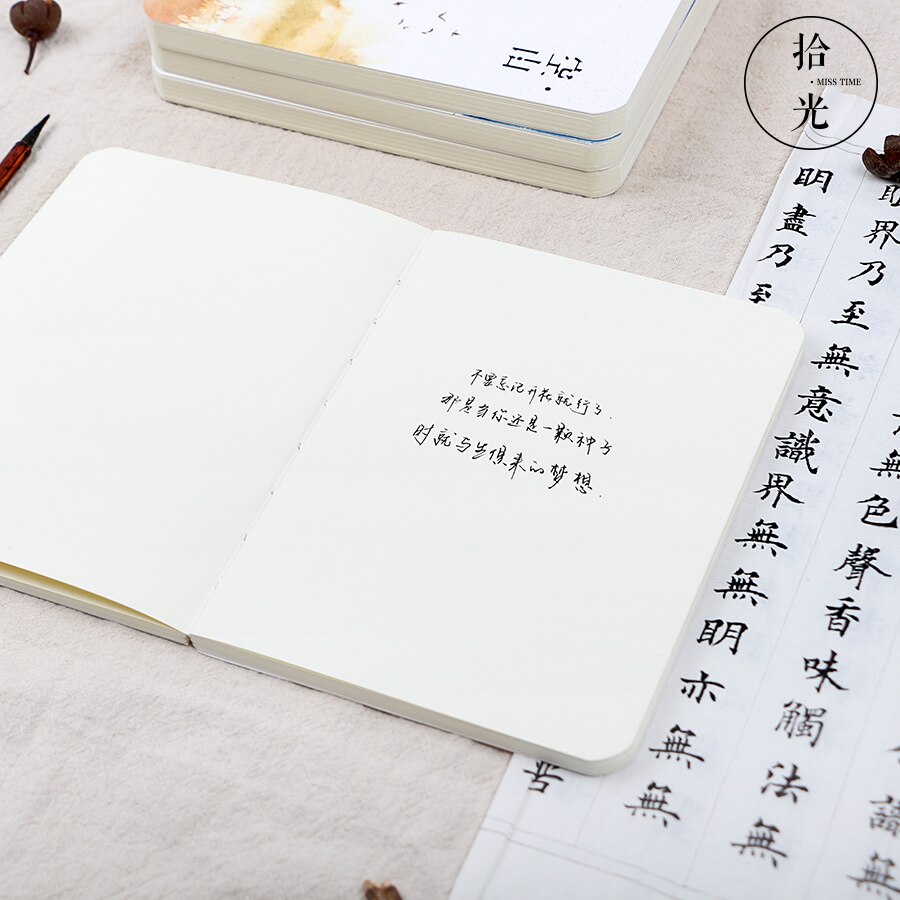 拾光
·MISS TIME
不要忘记开花就行了.
那是当你还是一颗种子
时就与生俱来的梦想.
識無
無色聲香味觸法無
界乃至無意識界無無明亦無無
明盡乃至
苦